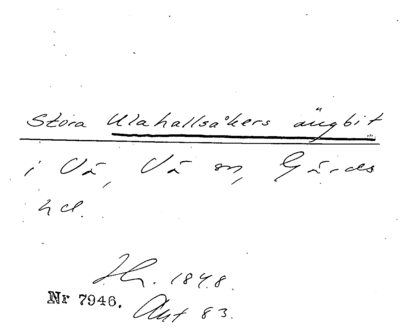 Stora Ulahallsåkers ängbit
i Vä, Vä sn, Gärds
hd.
1848.
Nr 7946. Akt 83.